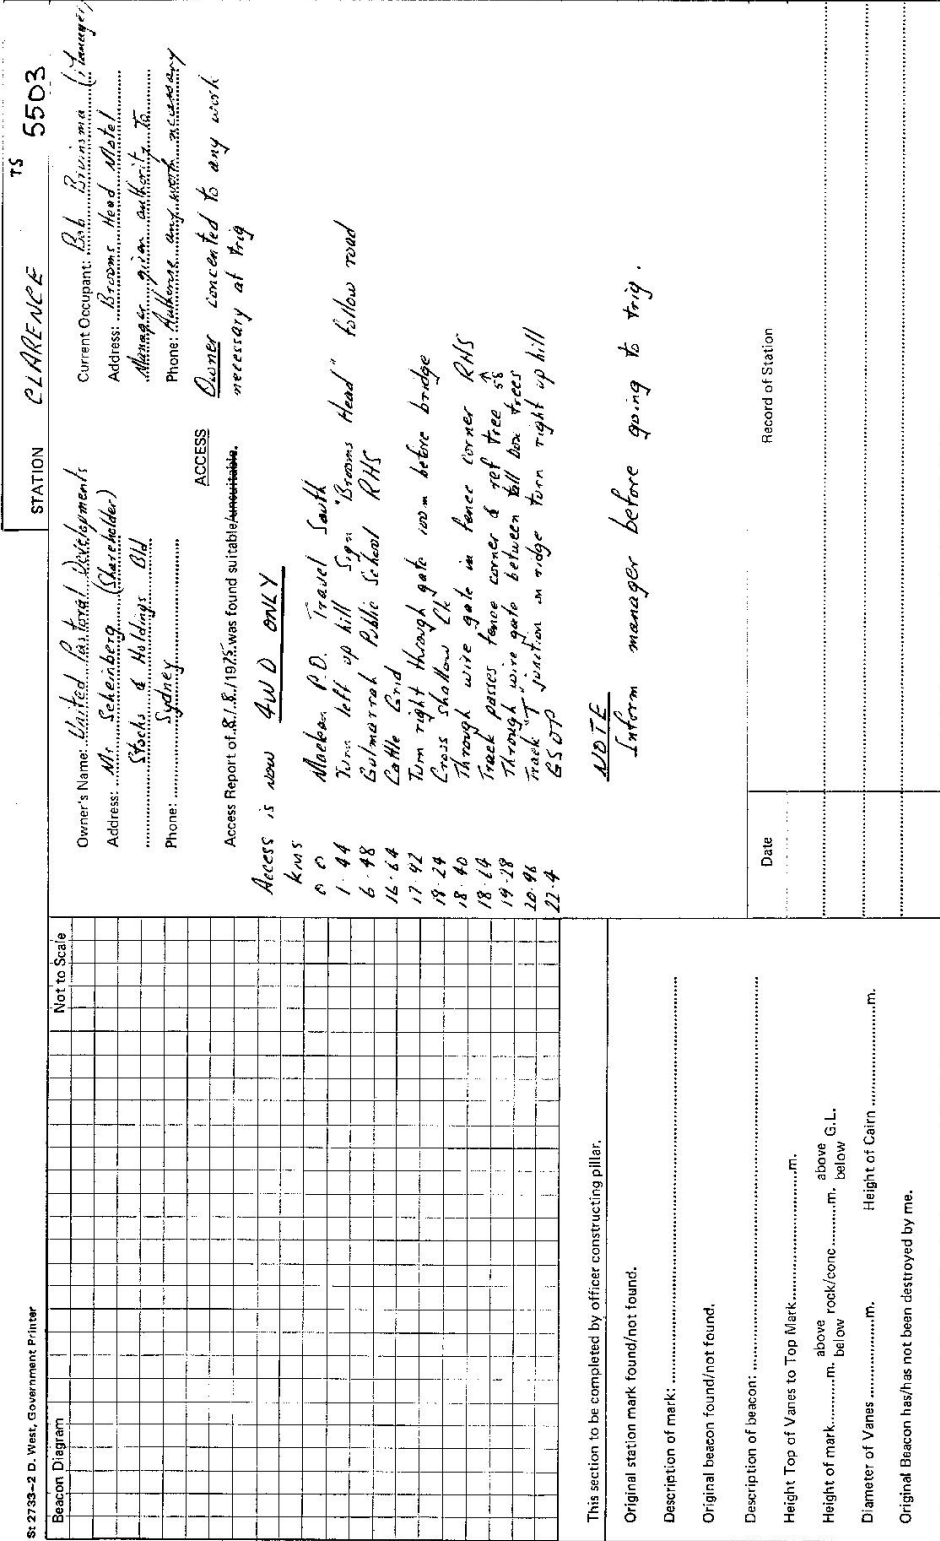 St 2733–2 D. West, Government Printer
Beacon Diagram
Not to Scale
This section to be completed by officer constructing pillar.
Original station mark found/not found.
Description of mark:
Original beacon found/not found.
Description of beacon:
Height Top of Vanes to Top Mark m.
Height of mark m. above below rock/conc m. above below G.L.
Diameter of Vanes m. Height of Cairn m.
Original Beacon has/has not been destroyed by me.
STATION CLARENCE TS 5503
Owner's Name: United Pastoral Developments
Address: Mr Scheinberg (Shareholder)
Stocks & Holdings Bld
Phone: Sydney
Current Occupant: Bob Bruinsma (Manager)
Address: Brooms Head Motel
Manager given authority to
Phone: Authorise any work necessary
ACCESS
Owner concented to any work
necessary at trig
Access Report of 8/8/1975 was found suitable/unsuitable.
Access is now 4WD ONLY
kms
0 0 Maclean P.O. Travel South
1.44 Turn left up hill Sign "Brooms Head" follow road
6.48 Gulmarrah Public School RHS
16.64 Cattle Grid
17.92 Turn right through gate 100m before bridge
18.24 Cross Shallow Ck
18.40 Through wire gate in fence corner RHS
18.64 Track passes fence corner & ref tree 58
19.28 Through wire gate between tall box trees
20.96 Track "T" junction on ridge turn right up hill
22.4 GSOP
NOTE
Inform manager before going to trig.
Date
Record of Station